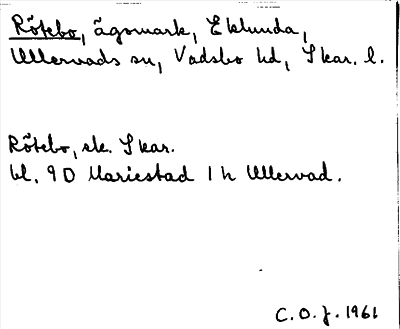 Rötebo, ägomark, Eklunda,
Ullervads sn, Vadsbo hd, Skar. l.
Rötebo, ek. Skar.
bl. 9D Mariestad 1 h Ullervad.
C.O.J. 1961